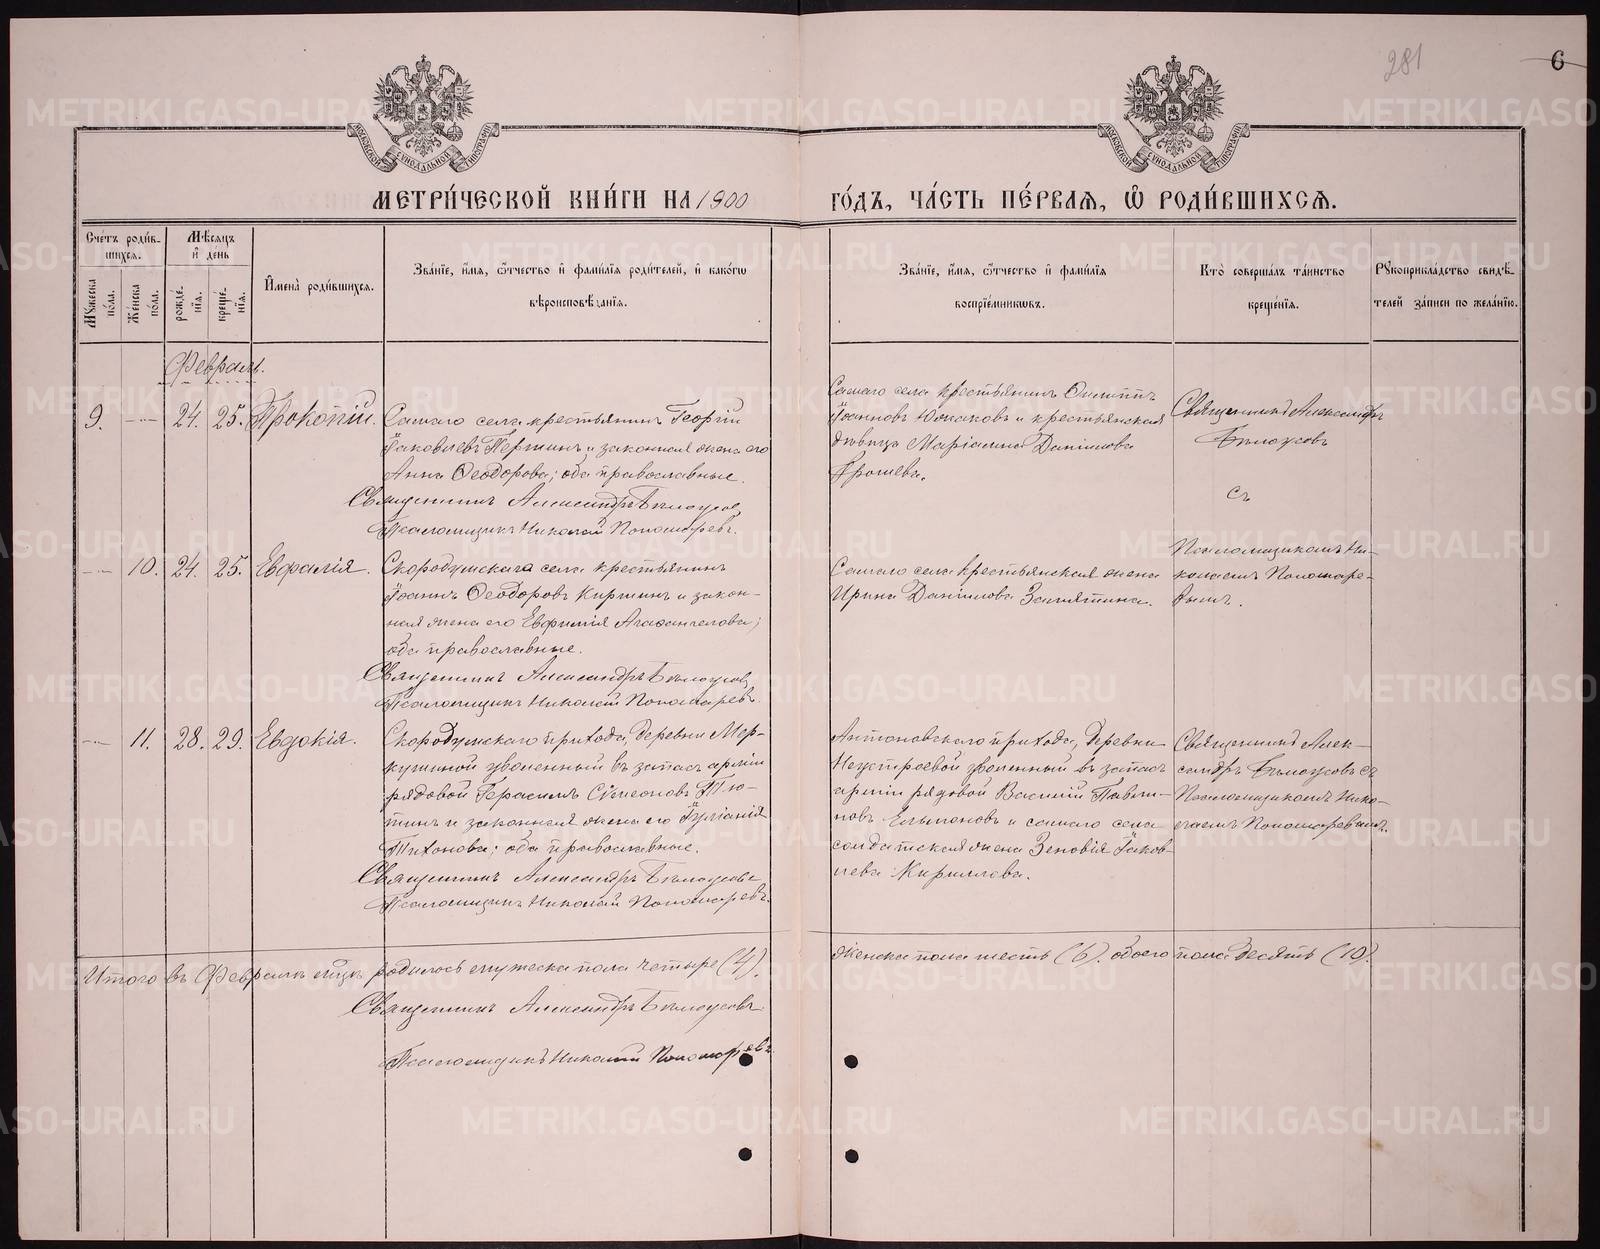 281
6
МЕТРИ́ЧЕСКОЙ КНИ́ГИ НА 1900
ГО́ДЪ, ЧА́СТЬ ПЕ́РВАѦ, Ѡ҆ РОДИ́ВШИХСѦ.
Сче́тъ роди́в-
шихсѧ.
Мѣ́сѧцъ
и҆ де́нь
Мꙋ́жеска по́ла.
Же́нска по́ла.
рожде́-
нїѧ.
креще́-
нїѧ.
И҆мена̀ роди́вшихсѧ.
Зва́нїе, и҆́мѧ, ѻ҆́тчество и҆ фами́лїѧ роди́телей, и҆ како́гѡ
вѣроисповѣ́данїѧ.
Зва́нїе, и҆́мѧ, ѻ҆́тчество и҆ фами́лїѧ
воспрїе́мниковъ.
Кто̀ соверша́лъ та́инство
креще́нїѧ.
Рꙋкоприкла́дство свидѣ́-
телей за́писи по жела́нїю.
Февраль.
9. 24. 25. Прокопій.
Самаго села крестьянинъ Георгій
Іаковлевъ Першинъ и законная жена его
Анна Ѳеодорова; оба православные.
Священникъ Александръ Бѣлоусов
Псаломщикъ Николай Пономаревъ.
Самаго села крестьянинъ Филиппъ
Іоанновъ Южаковъ и крестьянская
дѣвица Маріамна Даніилова
Священникъ Александръ
Бѣлоусовъ
съ
Псаломщикомъ Ни-
колаемъ Пономаре-
вымъ.
10. 24. 25. Евѳалія.
Скородумскаго села крестьянинъ
Іоаннъ Ѳеодоровъ Киршинъ и закон-
ная жена его Евфимія Агаѳангелова;
оба православные.
Священникъ Александръ Бѣлоусовъ
Псаломщикъ Николай Пономаревъ.
Самаго села крестьянская жена
Ирина Даніилова Замятина.
11. 28. 29. Евдокія.
Скородумскаго прихода, деревни Мер-
кушиной уволенный въ запасъ арміи
рядовой Герасимъ Сѵмеоновъ Тю-
тинъ и законная жена его Іуліанія
Тихонова; оба православные.
Священникъ Александръ Бѣлоусовъ
Псаломщикъ Николай Пономаревъ.
Антоновскаго прихода, деревни
Неустроевой уволенный въ запасъ
арміи рядовой Василій Павли-
новъ и самаго села
солдатская жена Зеновія Іаков-
лева Кириллова.
Священникъ Алек-
сандръ Бѣлоусовъ съ
Псаломщикомъ Нико-
лаемъ Пономаревымъ.
Итого въ Февралѣ мѣсяцѣ родилось мужеска пола четыре (4).
женска пола шесть (6). обоего пола десять (10).
Священникъ Александръ Бѣлоусовъ
Псаломщикъ Николай Пономаревъ